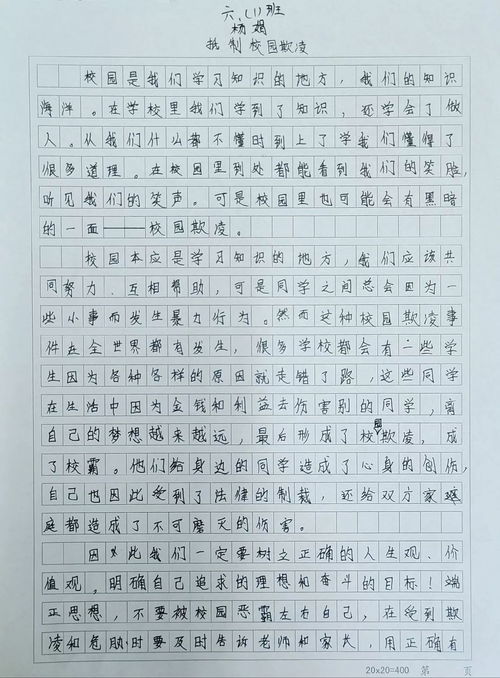 六.(1)班
杨娟
抵制校园欺凌
校园是我们学习知识的地方，我们的知识
海洋。在学校里我们学到了知识，还学会了做
人。从我们什么都不懂时到上了学我们懂得了
很多道理。在校园里到处都能看到我们的笑脸，
听见我们的笑声。可是校园里也可能会有黑暗
的一面——校园欺凌。
校园本应是学习知识的地方，我们应该共
同努力、互相帮助，可是同学之间总会因为一
些小事而发生暴力行为。然而这种校园欺凌事
件在全世界都有发生，很多学校都会有一些学
生因为各种各样的原因就走错了路，这些同学
在生活中因为金钱和利益去伤害别的同学，离
自己的梦想越来越远，最后形成了校园欺凌，成
了校霸。他们给身边的同学造成了心身的创伤，
自己也因此受到了法律的制裁，还给双方家
庭都造成了不可磨灭的伤害。
因此我们一定要树立正确的人生观、价
值观，明确自己追求的理想和奋斗的目标！端
正思想，不要被校园恶霸左右自己，在受到欺
凌和危胁时要及时告诉老师和家长，用正确有
20×20=400 第 页